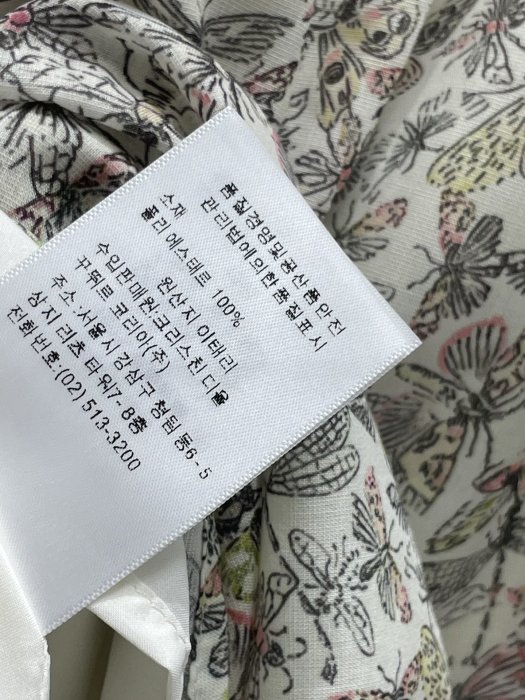 품질 경영 및공산품안전
관리법에의한 품질표시
소재
폴리 에스테르 100%
원산지 이태리
수입판매원크리스천 디올
꾸뛰르 코리아(주)
주소:서울시 강삼구 청담 동6-5
삼지 리츠 타워7-8층
전화번호:(02)513-3200